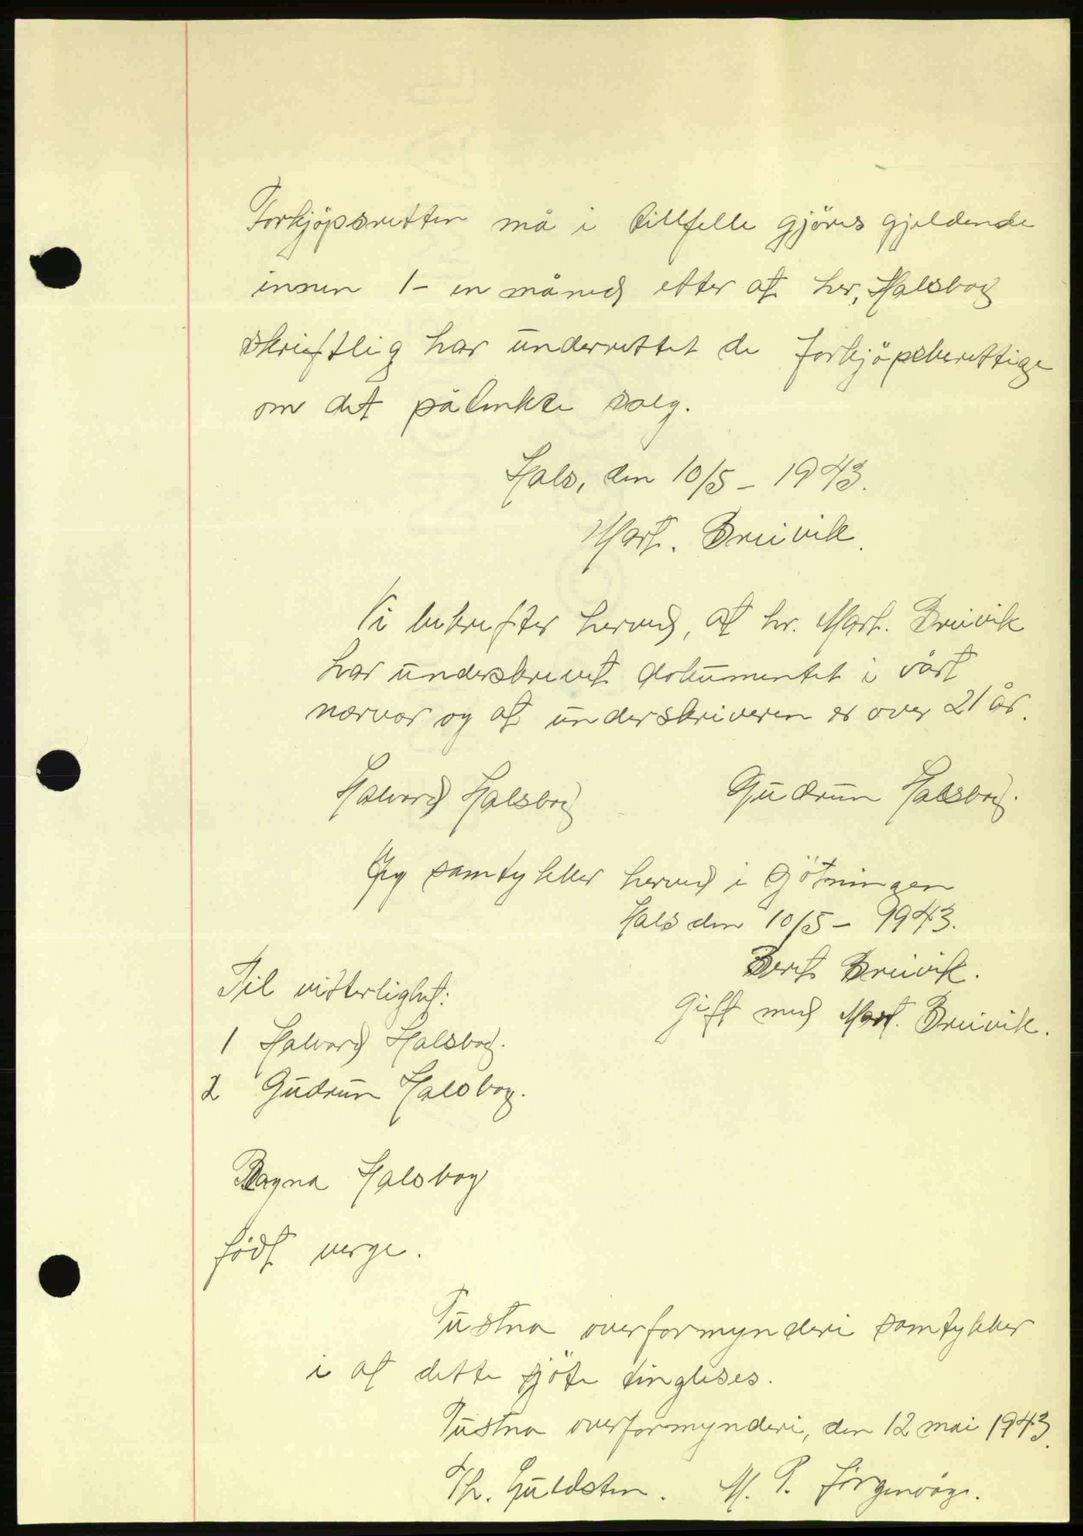 Forkjöpsretten må i tillfelle gjöres gjeldende
innen 1- en måned etter at hr. Halsbog
skriftlig har underrettet de forkjöpsberettige
om det påtenkte salg.
Hals, den 10/5 - 1943.
Mart. Breivik.
Vi bekrefter herved, at hr. Mart. Breivik
har underskrevet dokumentet i vårt
nærvær og at underskriveren er over 21 år.
Halvard Halsbog
Gudrun Halsbog.
Jeg samtykker herved i sjötningen
Hals den 10/5 - 1943.
Berit Breivik.
Gift med Mart. Breivik.
Til vitterlighet:
1 Halvard Halsbog.
2 Gudrun Halsbog.
Ragna Halsbog
födt verge.
Tustna overformynderi samtykker
i at dette sjöte tingleses.
Tustna overformynderi, den 12 mai 1943.
Th. Guldsten. M. P. Jörgenvåg.